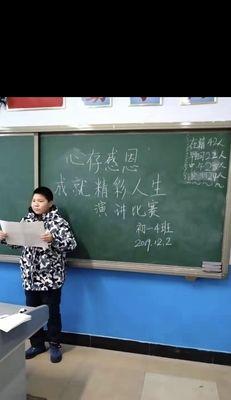 心存感恩
成就精彩人生
演讲比赛
初一4班
2019.12.2
在籍42人